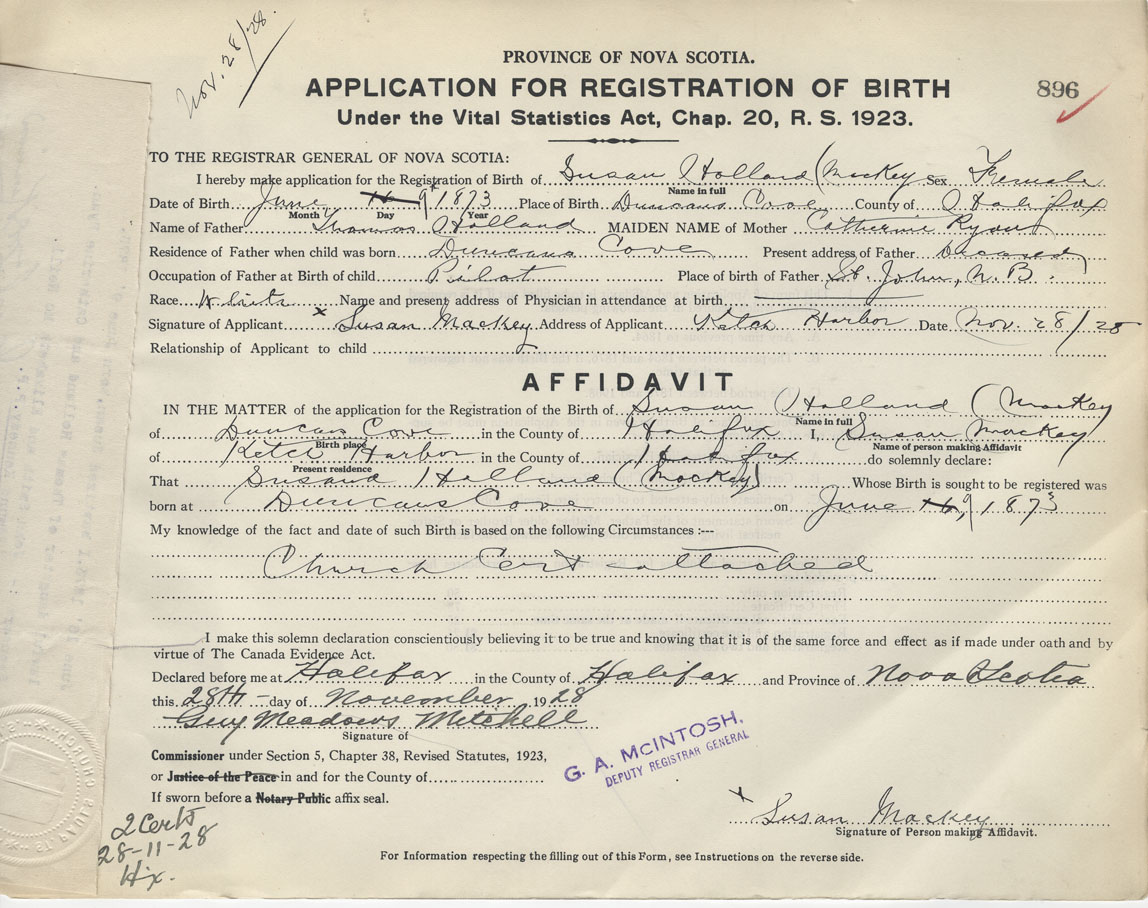 Nov. 28/28.
PROVINCE OF NOVA SCOTIA.
APPLICATION FOR REGISTRATION OF BIRTH
896
Under the Vital Statistics Act, Chap. 20, R. S. 1923.
TO THE REGISTRAR GENERAL OF NOVA SCOTIA:
I hereby make application for the Registration of Birth of Susan Holland (Mackey Sex Female
Name in full
Date of Birth June 9 1873 Place of Birth Duncans Cove County of Halifax
Month Day Year
Name of Father Thomas Holland MAIDEN NAME of Mother Catherine Ryan
Residence of Father when child was born Duncans Cove Present address of Father Deceased
Occupation of Father at Birth of child Pilot Place of birth of Father St. John, N.B.
Race White Name and present address of Physician in attendance at birth
Signature of Applicant x Susan Mackey Address of Applicant Ketch Harbor Date Nov. 28/28
Relationship of Applicant to child
AFFIDAVIT
IN THE MATTER of the application for the Registration of the Birth of Susan Holland (Mackey
Name in full
of Duncans Cove in the County of Halifax I, Susan Mackey
Birth place Name of person making Affidavit
of Ketch Harbor in the County of Halifax do solemnly declare:
Present residence
That Susan Holland (Mackey) Whose Birth is sought to be registered was
born at Duncans Cove on June 9, 1873
My knowledge of the fact and date of such Birth is based on the following Circumstances :---
Church Cert attached
I make this solemn declaration conscientiously believing it to be true and knowing that it is of the same force and effect as if made under oath and by
virtue of The Canada Evidence Act.
Declared before me at Halifax in the County of Halifax and Province of Nova Scotia
this 28th day of November 1928
Guy Meadows Mitchell
Signature of
Commissioner under Section 5, Chapter 38, Revised Statutes, 1923,
or Justice of the Peace in and for the County of
If sworn before a Notary Public affix seal.
G. A. McINTOSH,
DEPUTY REGISTRAR GENERAL
x Susan Mackey
Signature of Person making Affidavit.
2 Certs
28-11-28
Hx.
For Information respecting the filling out of this Form, see Instructions on the reverse side.